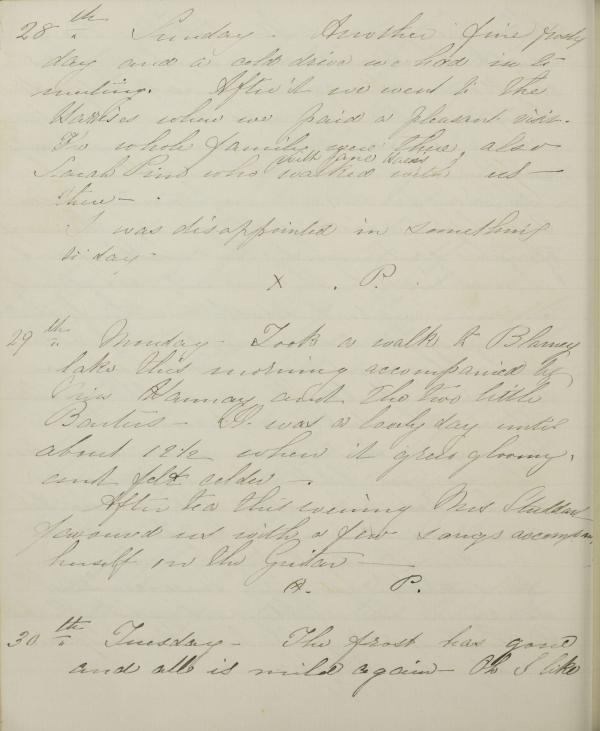 28th Sunday - Another fine frosty
day and a cold drive we had in to
meeting. After it we went to the
where we paid a pleasant visit.
The whole family were there, also
with Jane
Sarah Pim who walked with us -
there -
I was disappointed in something
to day -
X . P.
29th Monday - Took a walk to Blarney
lake this morning accompanied by
Miss Hannay and the two little
- It was a lovely day until
about 12½ when it grew gloomy,
and felt colder -
After tea this evening Mrs
favoured us with a few songs
himself on the Guitar -
P.
30th Tuesday - The frost has gone
and all is mild again - Oh I like